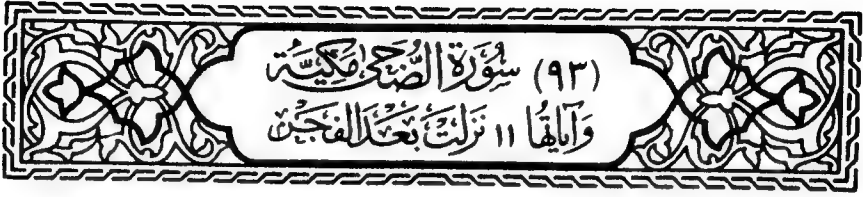 (٩٣) سُورَة الضُّحَىٰ مَكِّيَّة
وَآيَاتُهَا ١١ نَزَلَتْ بَعْدَ الفَجْر